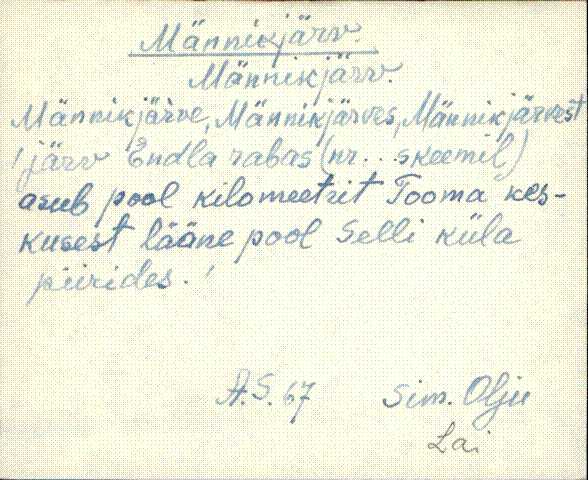 Männikjärv.
Männikjärv.
Männikjärve, Männikjärves, Männikjärvest
! järv Endla rabas (nr. .. skeemil)
asub pool kilomeetrit Tooma kes-
kusest lääne pool Selli küla
piirides. !
A.S. 67 Sim. Olju
Lai